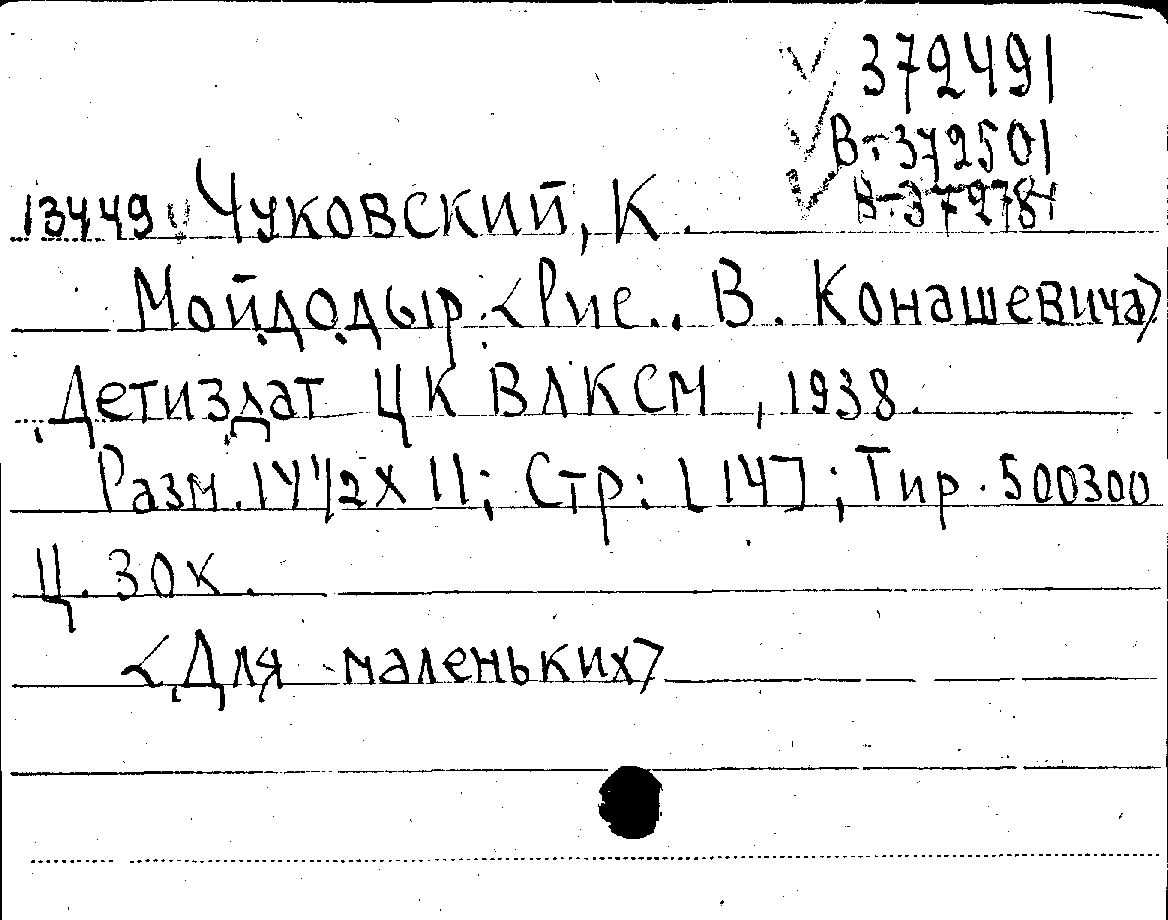 372491
В-372501
В-37278
13449 Чуковский, К.
Мойдодыр. <Рис.. В. Конашевича>
Детиздат ЦК ВЛКСМ, 1938.
Разм. 14 1/2 х 11; Стр: [14]; Тир. 500300
Ц. 30 к.
<Для маленьких>